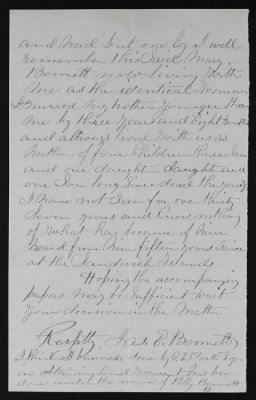 and Maid but one boy I well
remember this said Mary
Bennett now living with
me as the identical woman
who married my brother younger than
me by three years and Eight
and always lived with us as
Mother of four Children three Sons
and one daught. daughter and
one Son long since dead the young
I have not Seen for one thirty
Seven years and know nothing
of what has become of him
heard from him fifteen years Since
at the Sandwich Islands
Hoping the accompanying
papers may be sufficient wait
your decision in the Matter
Respttly Jas. E. Bennett
I think all business done by Clark Esqr
in obtaining Land Warrant has been
done under the name of Polly Bennett